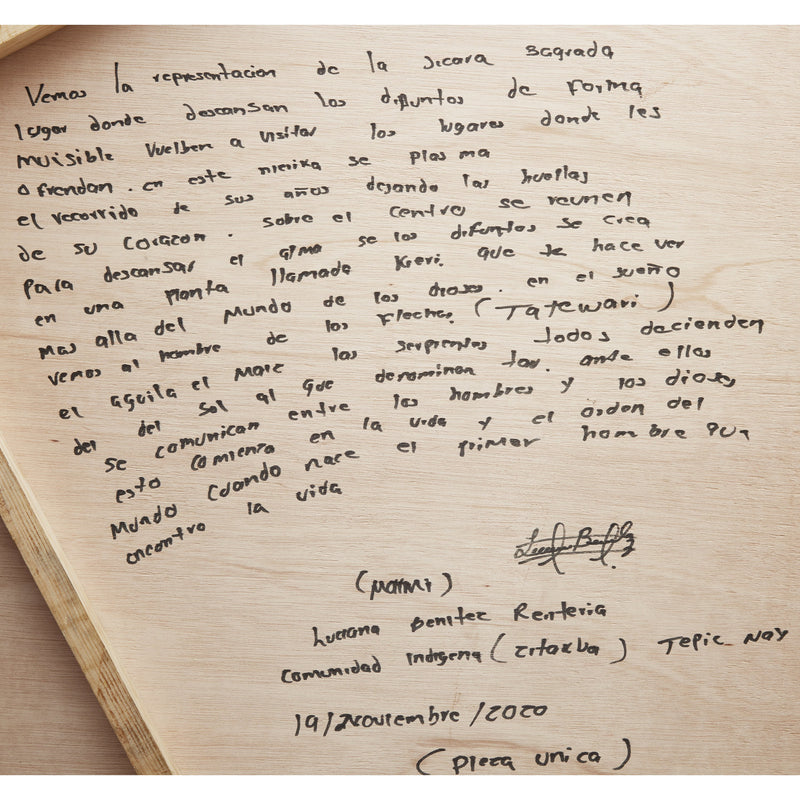 Vemos la representacion de la Jicara sagrada
lugar donde descansan los difuntos de forma
muisible vuelben a visitar los lugares donde les
ofrendan. en este nierika se plas ma
el recorrido de sus años dejando las huellas
de su corazon. sobre el centro se reunen
para descansar el alma se los difuntos se crea
en una planta llamada kieri. que te hace ver
mas alla del mundo de los dioses. en el sueño
vemos al hombre de los flechas. (Tatewari)
el aguila el maiz las serpientes todos decienden
del del sol al que denominan tav. ante ellos
se comunican entre los hombres y los dioses
esto comienza en la vida y el orden del
mundo cuando nace el primer hombre que
encontro la vida
(Maximi)
Luciana Benitez Renteria
comunidad indigena (zitakua) Tepic Nay
19/Noviembre/2020
(pieza unica)